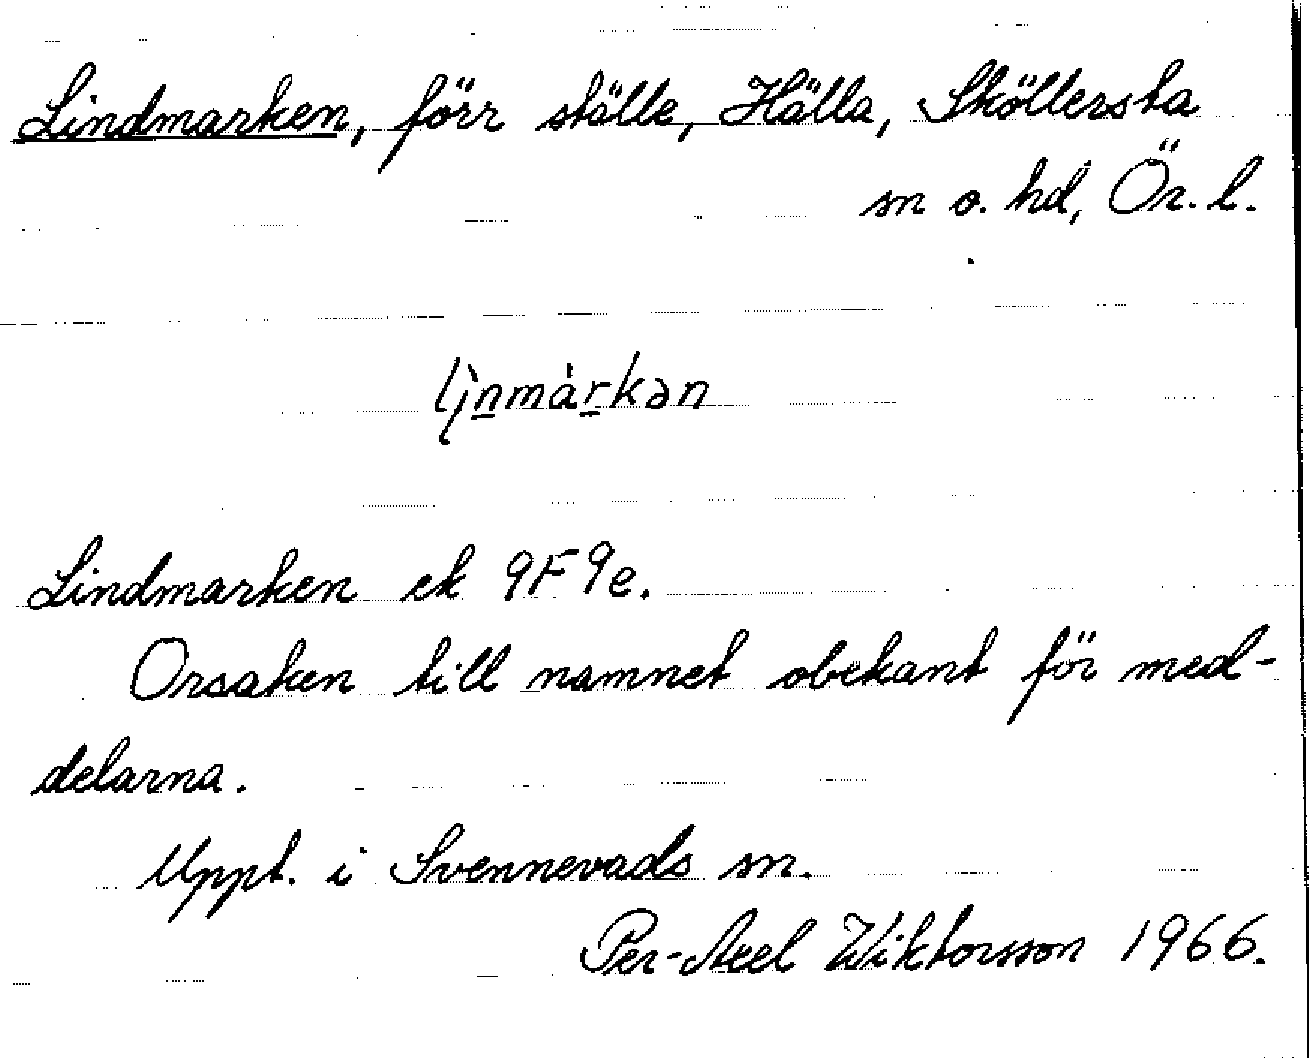 Lindmarken, förr ställe, Hälla, Sköllersta
sn o. hd, Ör. l.
Lindmarken ek 9F 9e.
Orsaken till namnet obekant för med-
delarna.
Uppt. i Svennevads sn.
Per-Axel Wiktorsson 1966.